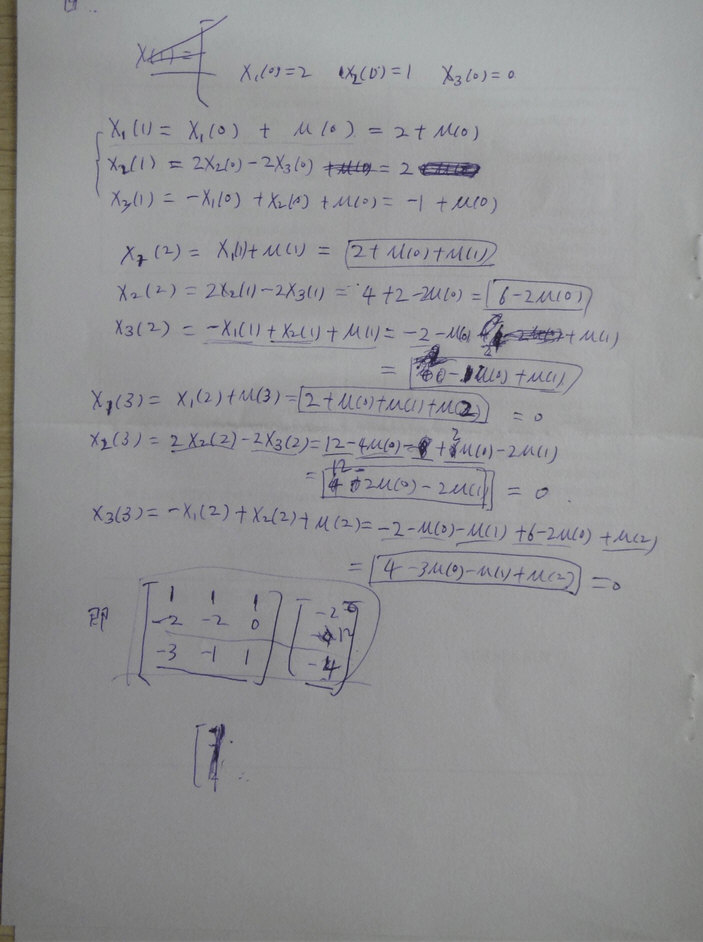 X(1) = [
X₁(0)=2 X₂(0)=1 X₃(0)=0
X₁(1) = X₁(0) + u(0) = 2+u(0)
X₂(1) = 2X₂(0)-2X₃(0) +u(0) = 2
X₃(1) = -X₁(0) +X₂(0) +u(0) = -1 +u(0)
X₁(2) = X₁(1)+u(1) = 2+u(0)+u(1)
X₂(2) = 2X₂(1)-2X₃(1) = 4+2-2u(0) = 6-2u(0)
X₃(2) = -X₁(1)+X₂(1)+u(1) = -2-u(0) +2 +u(1)
= -u(0)+u(1)
X₁(3) = X₁(2)+u(3) = 2+u(0)+u(1)+u(2) = 0
X₂(3) = 2X₂(2)-2X₃(2) = 12-4u(0) +2u(0)-2u(1)
= 12-2u(0)-2u(1) = 0.
X₃(3) = -X₁(2)+X₂(2)+u(2) = -2-u(0)-u(1)+6-2u(0)+u(2)
= 4-3u(0)-u(1)+u(2) =0
即 [ 1 1 1 ] [ -2 ]
-2 -2 0 12
-3 -1 1 -4
[